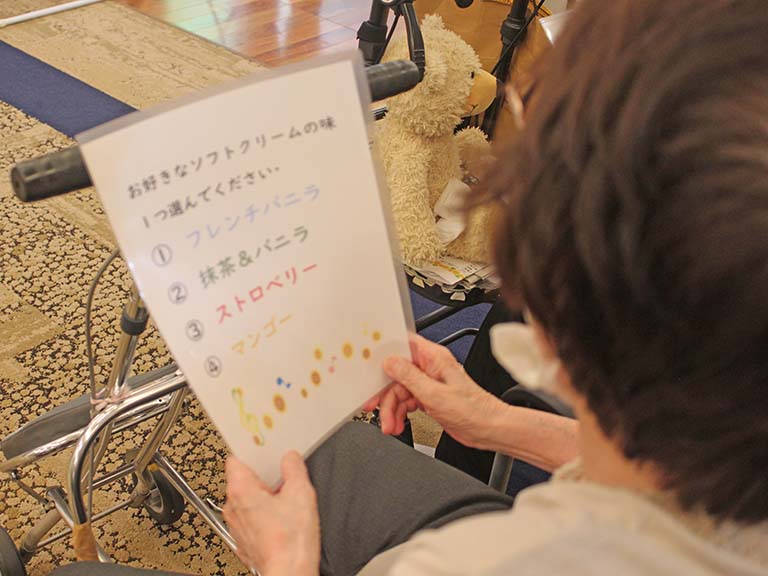 お好きなソフトクリームの味
1つ選んでください.
① フレンチバニラ
② 抹茶&バニラ
③ ストロベリー
④ マンゴー